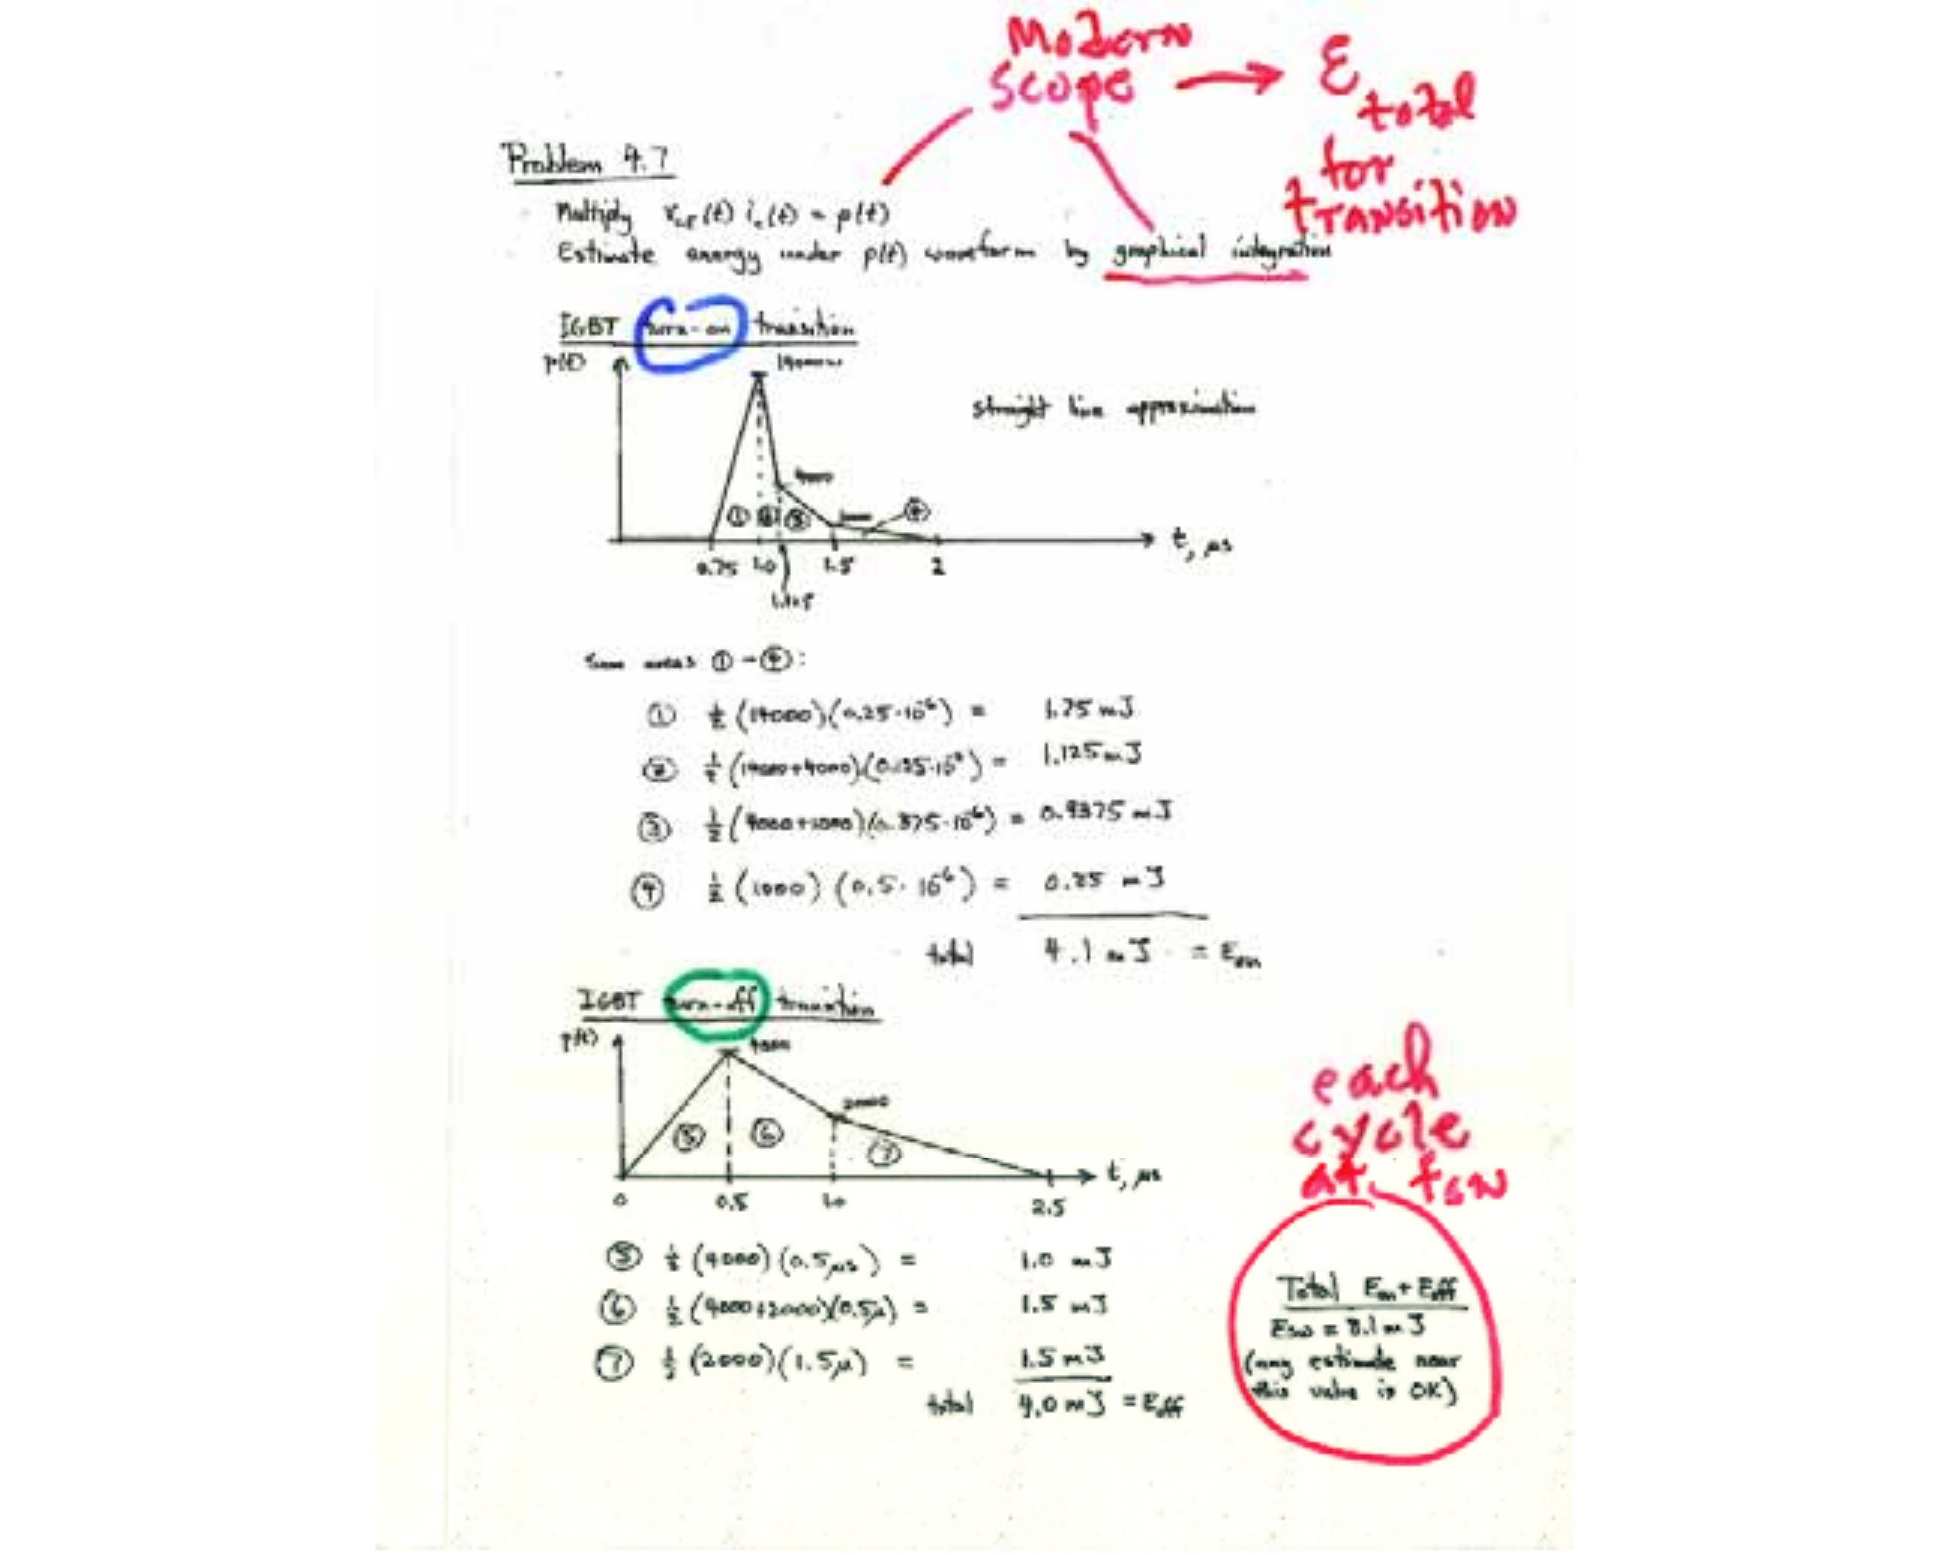 Modern
Scope → E total
for
transition
Problem 4.7
Multiply v_CE(t) i_c(t) = p(t)
Estimate energy under p(t) waveform by graphical integration
IGBT turn-on transition
p(t)
14000W
straight line approximation
4000
1000
① ② ③ ④
t, μs
0.75 1.0 1.5 2
1.125
Sum areas ① - ④:
① ½ (14000)(0.25·10⁻⁶) = 1.75 mJ
② ½ (14000+4000)(0.125·10⁻⁶) = 1.125 mJ
③ ½ (4000+1000)(0.375·10⁻⁶) = 0.9375 mJ
④ ½ (1000) (0.5·10⁻⁶) = 0.25 mJ
total 4.1 mJ = Eon
IGBT turn-off transition
p(t)
4000
2000
⑤ ⑥ ⑦
t, μs
0 0.5 1.0 2.5
each
cycle
at fsw
⑤ ½ (4000)(0.5μs) = 1.0 mJ
⑥ ½ (4000+2000)(0.5μ) = 1.5 mJ
⑦ ½ (2000)(1.5μ) = 1.5 mJ
total 4.0 mJ = Eoff
Total Eon + Eoff
Esw = 8.1 mJ
(any estimate near
this value is OK)